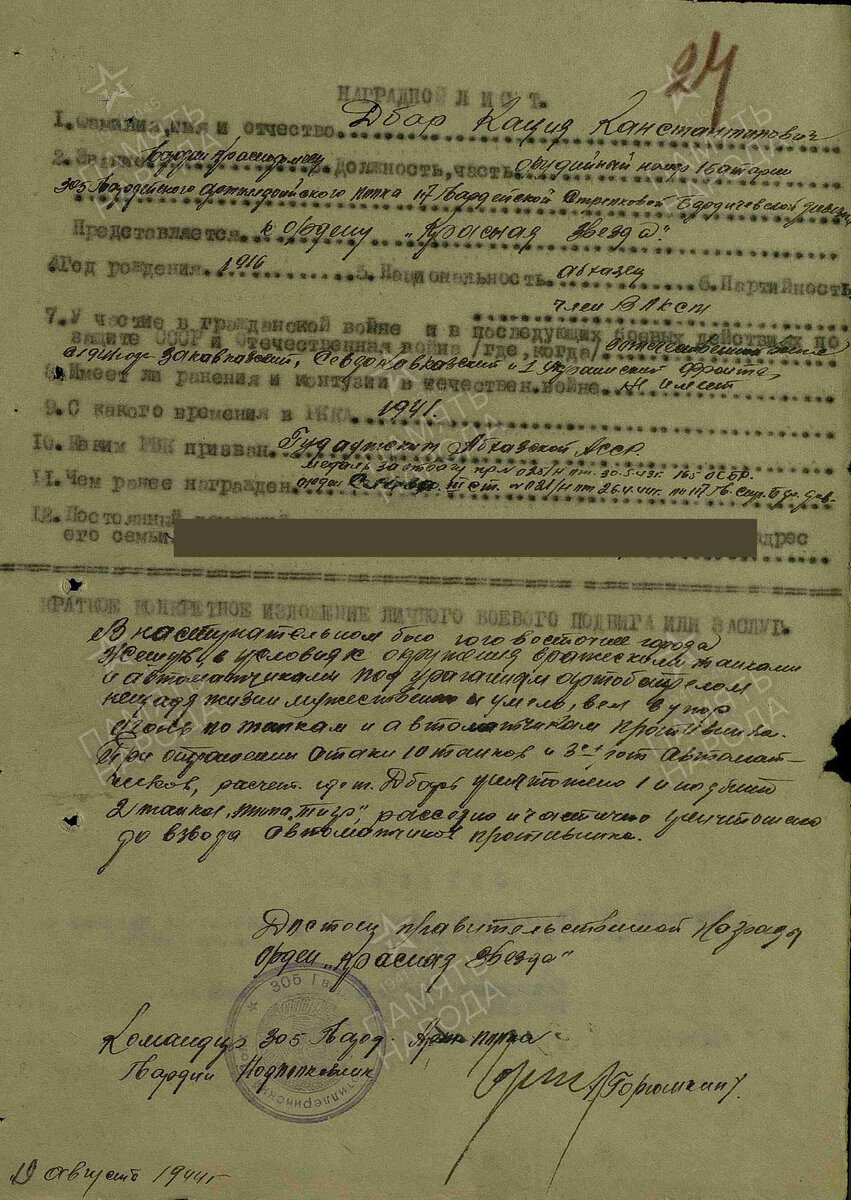 24
НАГРАДНОЙ ЛИСТ.
1. Фамилия, имя и отчество Дбар Кация Канстантинович
2. Звание Гвардии Красноармеец Должность, часть орудийный номер 1 батареи
305 Гвардейского Артиллерийского полка 117 Гвардейской Стрелковой Бердичевской дивизии
Представляется к ордену "Красная Звезда".
4. Год рождения 1916 5. Национальность абхазец 6. Партийность
член ВЛКСМ
7. Участие в гражданской войне и в последующих боевых действиях по
защите СССР и отечественная война /где, когда/ отечественной войне
Закавказский, и 1 Украинский фронта,
8. Имеет ли ранения и контузии в отечествен. войне Не имеет
9. С какого времени в РККА 1941.
10. Каким РВК призван. Гудаутским Абхазской АССР.
медаль За отвагу пр N 025/Н от 30.5.43г. 165 ОСБР.
11. Чем ранее награжден орден Славы III ст. от 26.4.44г. по 117 Гв. Стр. Б. див.
12. Постоянный адрес
его семьи
КРАТКОЕ КОНКРЕТНОЕ ИЗЛОЖЕНИЕ ЛИЧНОГО БОЕВОГО ПОДВИГА ИЛИ ЗАСЛУГ.
В наступательном бою юго восточнее города
Жешув, в условиях окружения вражескими танками
и автоматчиками под ураганым артобстрелом
нещадя жизни мужественно и умело, вел в упор
огонь по танкам и автоматчикам противника.
При отражении атаки 10 танков и 3-х рот автомат-
чиков, расчет. где т. Дбар уничтожено 1 и подбит
2 танка, типа "Тигр", рассеяно и частично уничтожено
до взвода автоматчиков противника.
Достоен правительственной Награды
орден "Красная Звезда"
Командир 305 Гвард. Арт. полка
Гвардии Подполковник /Горюшкин/.
305 Гвар
ртиллерийский
19 августа 1944г
ПАМЯТЬ НАРОДА